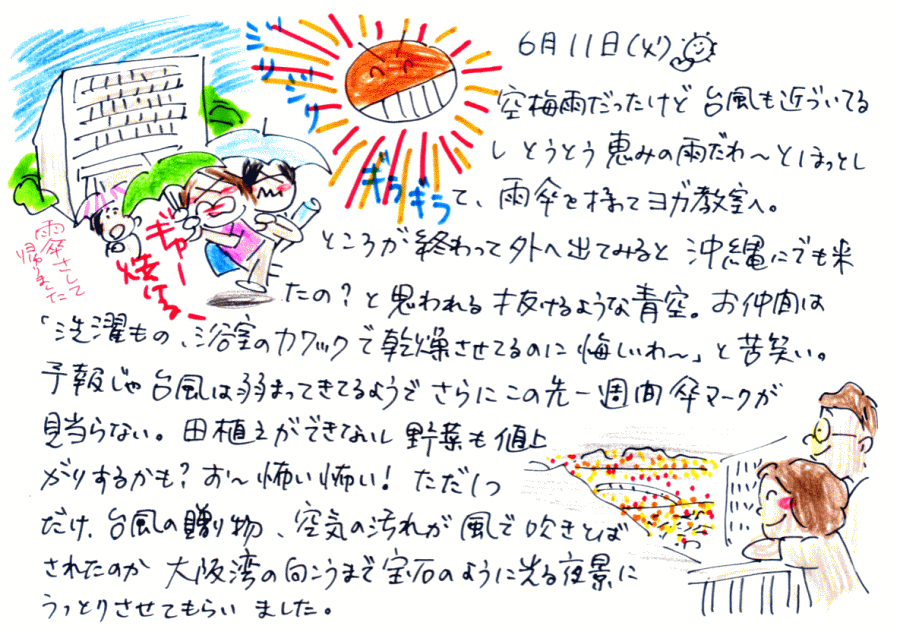 6月11日(火)
空梅雨だったけど 台風も近づいてる
し とうとう 恵みの雨だわ〜とほっとし
て、雨傘を持って ヨガ教室へ。
ところが 終わって 外へ出てみると 沖縄にでも来
たの？と思われる 抜けるような青空。お仲間は
「洗濯もの、浴室のカワックで乾燥させてるのに 悔しいわ〜」と苦笑い。
予報じゃ 台風は弱まってきてるようで さらにこの先一週間 傘マークが
見当らない。田植えができないし 野菜も値上
がりするかも？お〜怖い怖い！ ただ1つ
だけ、台風の贈り物、空気の汚れが 風で吹きとば
されたのか 大阪湾の向こうまで 宝石のように光る夜景に
うっとりさせてもらいました。
ギラギラ
ギャー
焼けるー
雨傘さして
帰りました